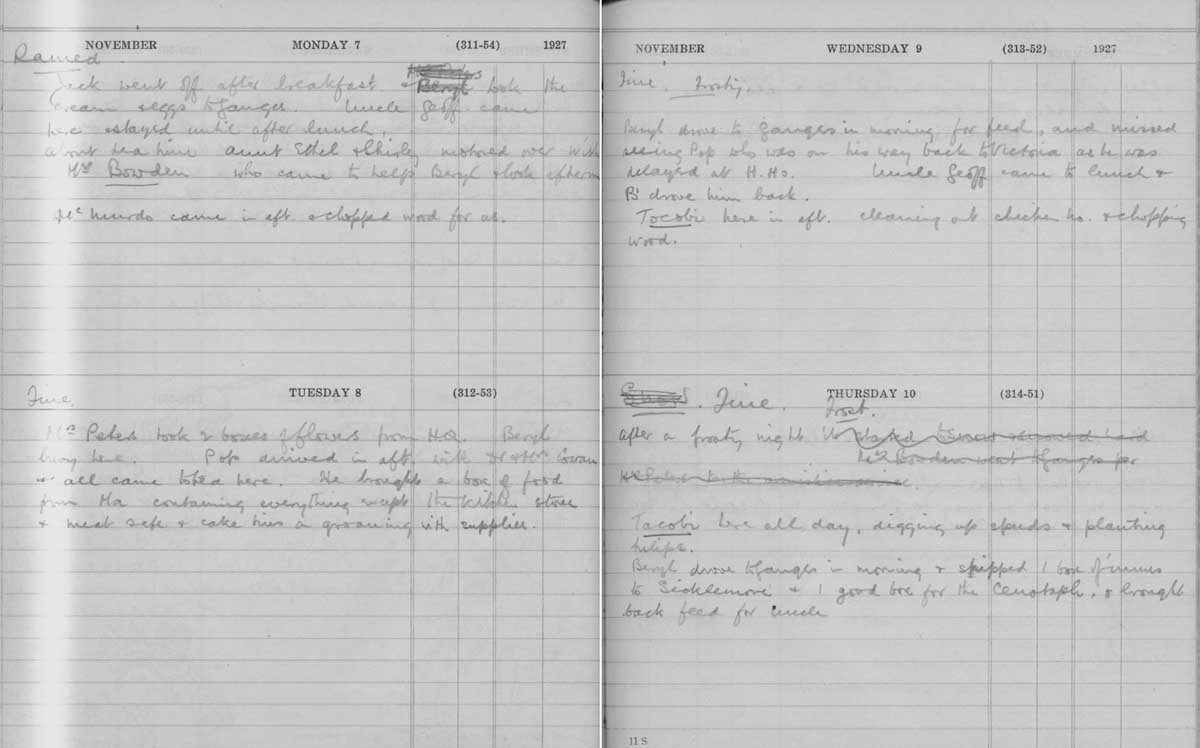 NOVEMBER MONDAY 7 (311-54) 1927
Rained.
Jack went off after breakfast & Beryl took the
cream & eggs to Ganges. Uncle Geoff came
here & stayed until after lunch.
About tea time Aunt Ethel & Shirley motored over with
Mrs Bowden who came to help Beryl & look after
McMurdo came in aft. & chopped wood for us.
TUESDAY 8 (312-53)
Fine.
Mrs Peter took 2 boxes of flowers from H.Q. Beryl
busy here. Pop arrived in aft. with Dr & Mrs Cowan
& all came to tea here. He brought a box of food
from Ma containing everything except the kitchen stove
& meat safe & cake tins a groaning with supplies.
NOVEMBER WEDNESDAY 9 (313-52) 1927
Fine. Frosty.
Beryl drove to Ganges in morning for feed, and missed
seeing Pop who was on his way back to Victoria as he was
delayed at H.Hs. Uncle Geoff came to lunch &
B. drove him back.
Tacobi here in aft. cleaning out chicken ho. & chopping
wood.
THURSDAY 10 (314-51)
Fine. Frost.
After a frosty night it started to
Mrs Bowden went to Ganges per
Tacobi here all day, digging up spuds & planting
tulips.
Beryl drove to Ganges in morning & shipped 1 box of 'mums
to Sicklemore & 1 good box for the Cenotaph, & brought
back feed for Uncle
11 S